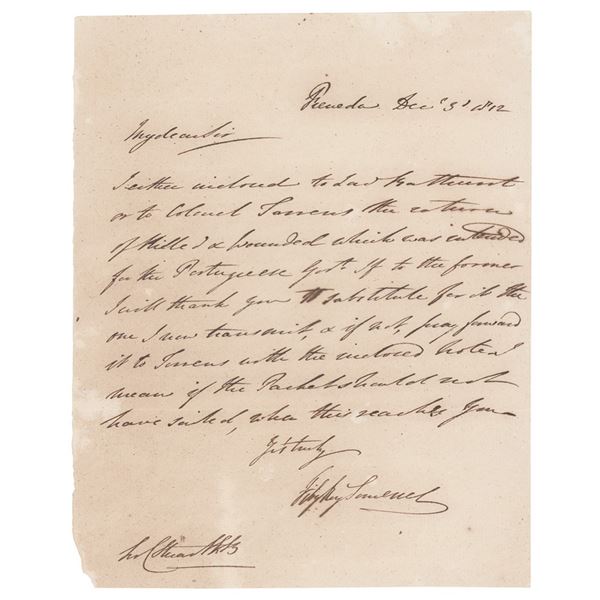 Freneda Decr 3d 1812
My dear Sir
I either inclosed to Lord Bathurst
or to Colonel Torrens the return
of Killed & wounded which was intended
for the Portuguese Govt. If to the former
I will thank you to substitute for it the
one I now transmit, & if not, pray forward
it to Torrens with the inclosed note. I
mean if the Packet should not
have sailed, when this reaches you
Yrs truly
FitzRoy Somerset
Sir C Stuart KB